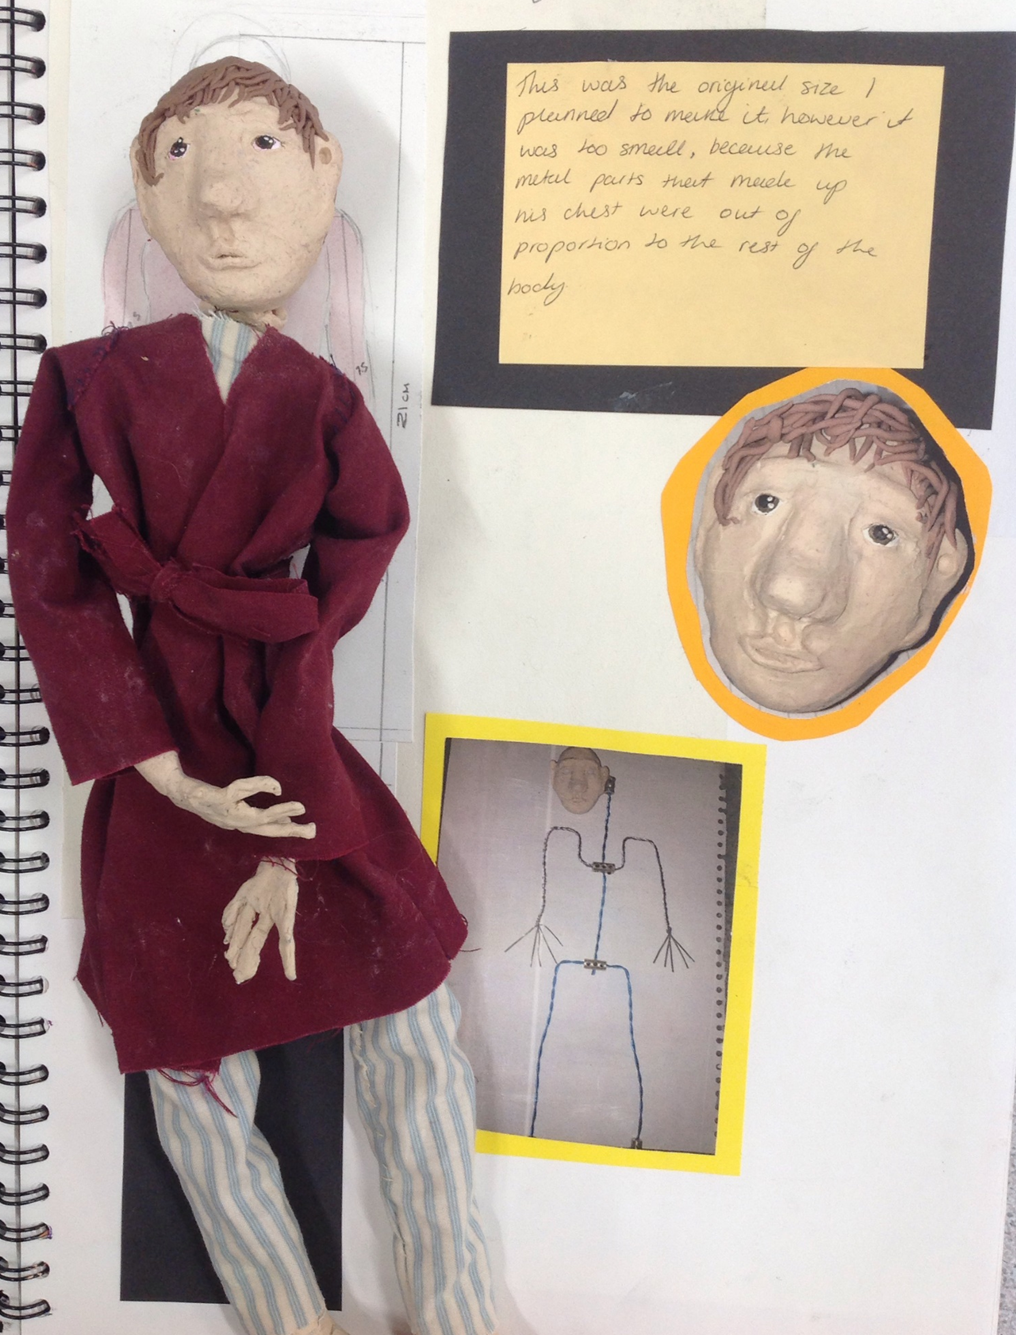 This was the original size I
planned to make it, however it
was too small, because the
metal parts that made up
his chest were out of
proportion to the rest of the
body
21 CM